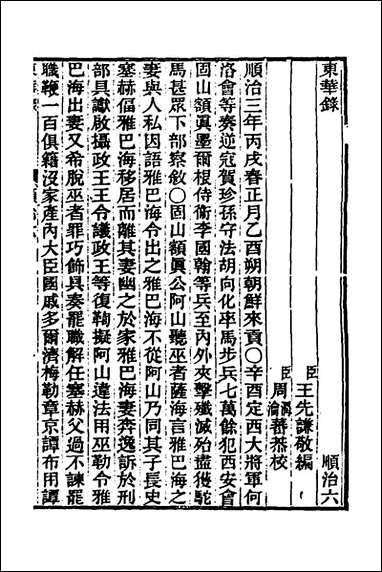 東華錄　順治六
臣王先謙敬編
臣周瀹蕃恭校
順治三年丙戌春正月乙酉朔朝鮮來貢○辛酉定西大將軍何
洛會等奏逆冦賀珍孫守法胡向化率馬步兵七萬餘犯西安會
固山額眞墨爾根侍衛李國翰等兵至內外夾擊殲滅殆盡獲駝
馬甚眾下部察敘○固山額眞公阿山聽巫者薩海言雅巴海之
妻與人私因語雅巴海令出之雅巴海不從阿山乃同其子長史
塞赫偪雅巴海移居而離其妻幽之於家雅巴海妻奔逸訴於刑
部具讞啟攝政王王令議政王等復鞫擬阿山違法用巫勒令雅
巴海出妻又希脫巫者罪巧飾具奏罷職解任塞赫父過不諫罷
職鞭一百俱籍沒家產內大臣國戚多爾濟梅勒章京譚布用譚